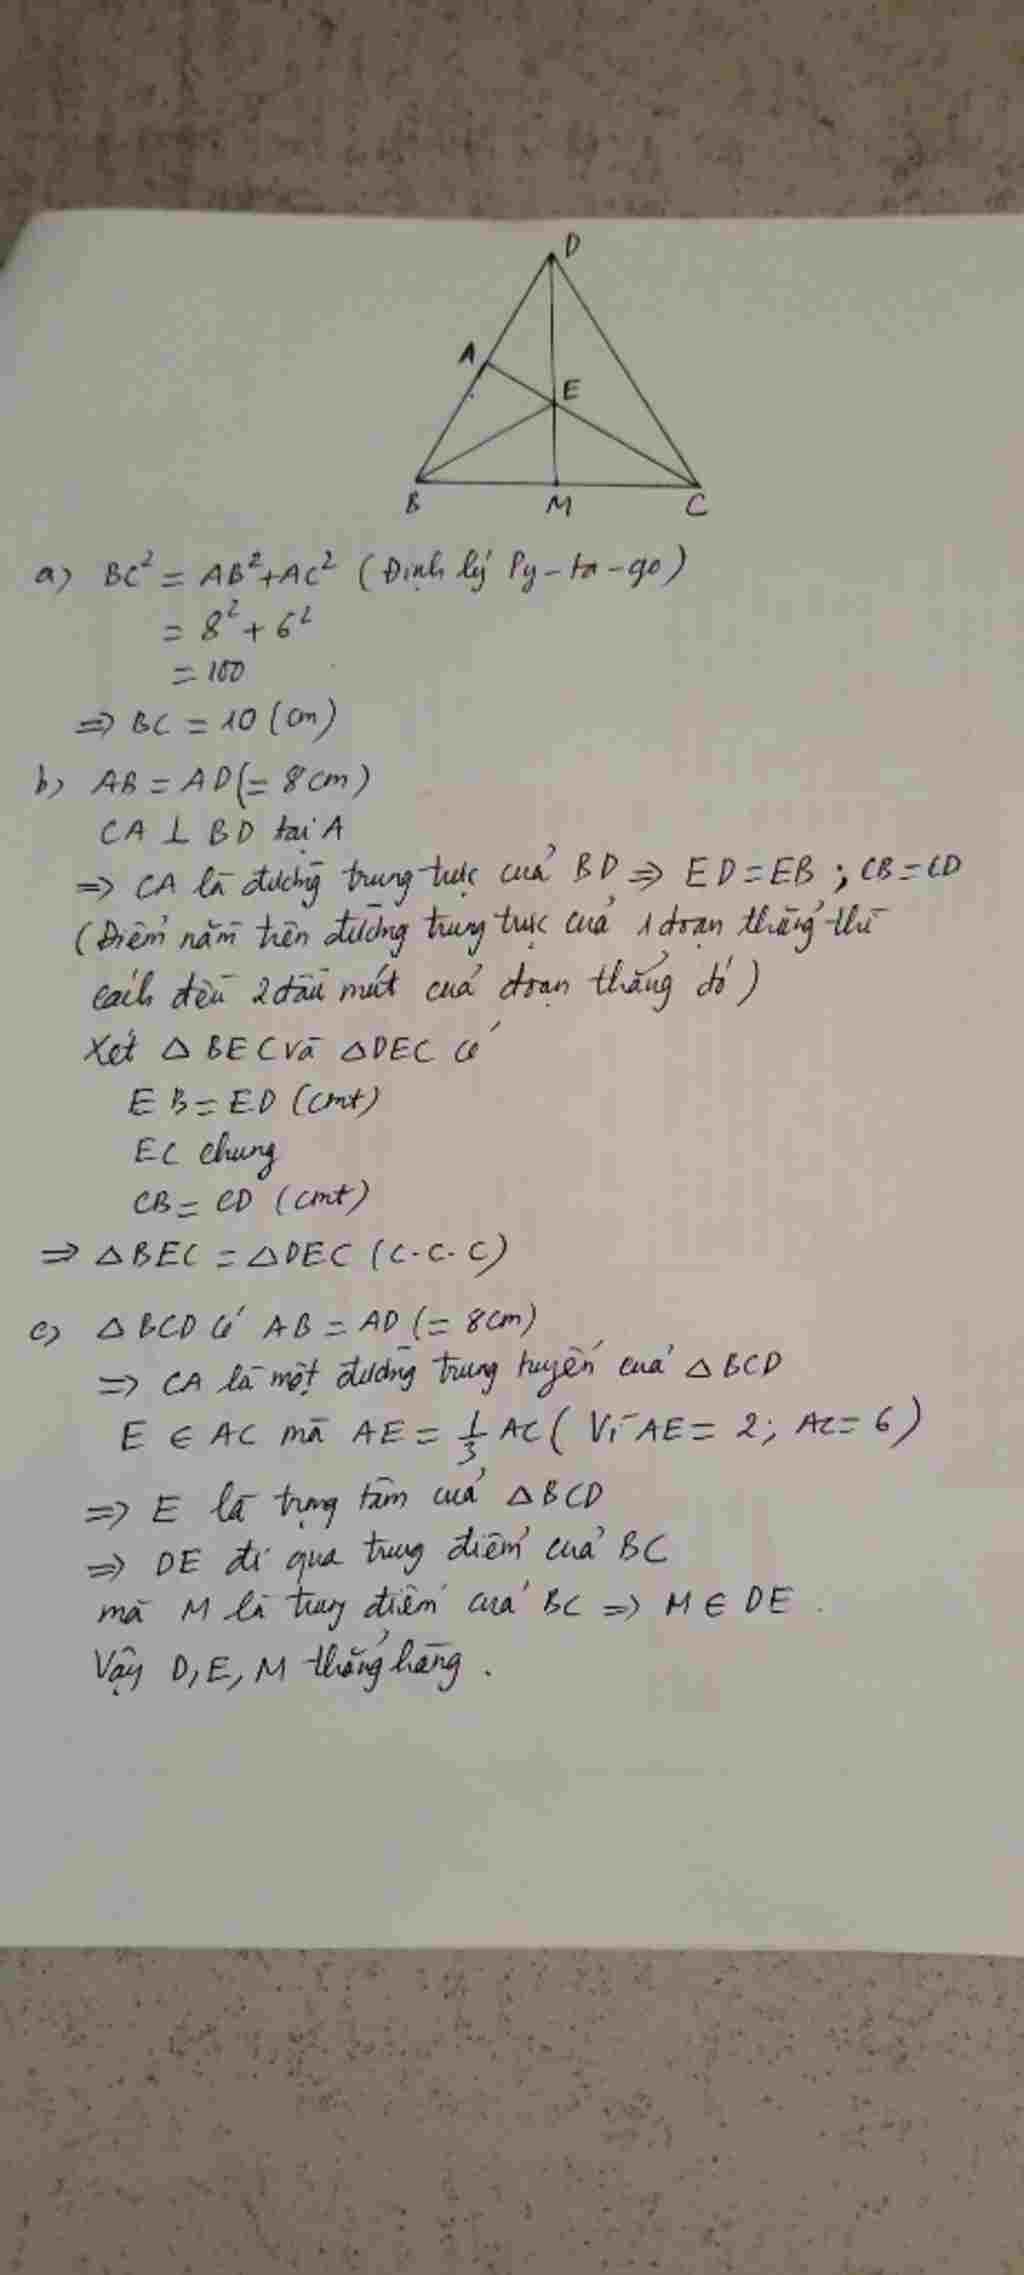 D
A
E
B
M
C
a) BC² = AB² + AC² (Định lý Py-ta-go)
= 8² + 6²
= 100
⇒ BC = 10 (cm)
b) AB = AD (= 8cm)
CA ⊥ BD tại A
⇒ CA là đường trung trực của BD ⇒ ED = EB ; CB = CD
(Điểm nằm trên đường trung trực của 1 đoạn thẳng thì
cách đều 2 đầu mút của đoạn thẳng đó)
Xét △ BEC và △DEC có
EB = ED (cmt)
EC chung
CB = CD (cmt)
⇒ △BEC = △DEC (c.c.c)
c) △ BCD có AB = AD (= 8cm)
⇒ CA là một đường trung tuyến của △BCD
E ∈ AC mà AE = 1/3 AC ( Vì AE = 2; AC = 6)
⇒ E là trọng tâm của △BCD
⇒ DE đi qua trung điểm của BC
mà M là trung điểm của BC ⇒ M ∈ DE.
Vậy D, E, M thẳng hàng.